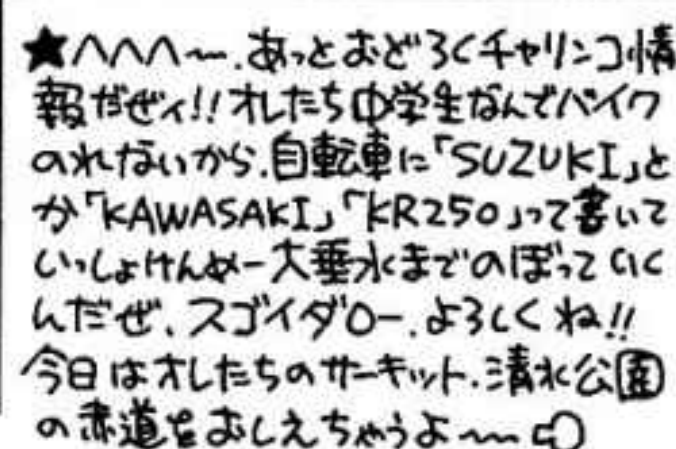 ★へへへ〜.あっとおどろくチャリンコ情
報だぜィ!!オレたち中学生なんでバイク
のれないから.自転車に「SUZUKI」と
か「KAWASAKI」「KR250」って書いて
いっしょけんめー大垂水までのぼっていく
んだぜ、スゴイダロー.よろしくね!!
今日はオレたちのサーキット.清水公園
の赤道をおしえちゃうよ〜〜⇨